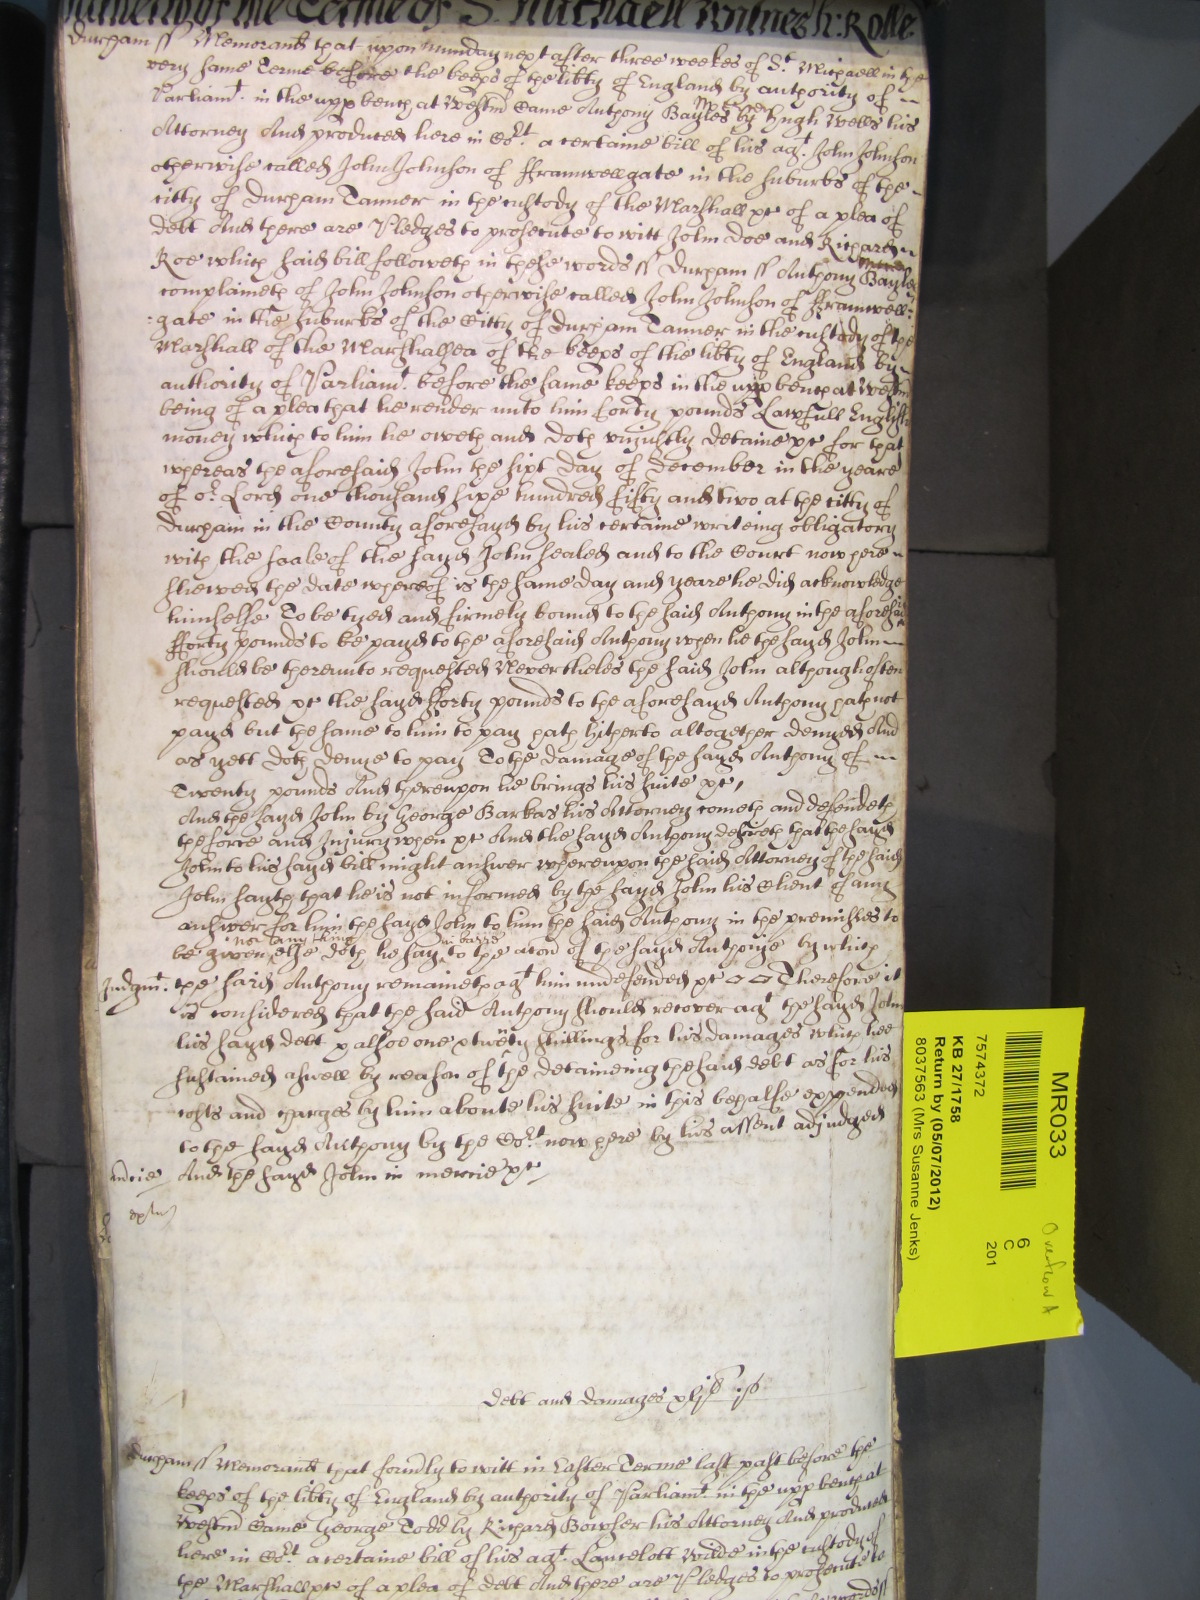 of the Terme of St. Michaell Witnes H: Rolle
Durham ss Memorand that upon Munday next after three weekes of St. Michaell in the
very same Terme before the keeps of the libty of England by authority of
Parliamt. in the upp bench at Westm Came Anthony Bayles by Hugh Wells his
Attorney And produced here in Cort. a certaine bill of his agt. John Johnson
otherwise called John Johnson of Framwellgate in the suburbs of the
citty of Durham Tanner in the custody of the Marshall &c of a plea of
debt And there are Pledges to prosecute to witt John Doe and Richard
Roe which said bill followeth in these words ss Durham ss Anthony Bayles
complaineth of John Johnson otherwise called John Johnson of Framwell:
:gate in the suburbs of the Citty of Durham Tanner in the custody of the
Marshall of the Marshallsea of the keeps of the libty of England by
authority of Parliamt. before the same keeps in the upp bench at Westm
being of a plea that he render unto him forty pounds Lawfull English
money which to him he oweth and doth unjustly detaine &c for that
whereas the aforesaid John the sixt day of December in the yeare
of or. Lord one thousand sixe hundred fifty and two at the citty of
Durham in the County aforesayd by his certaine writeing obligatory
with the seale of the sayd John sealed and to the Court now here
shewed the date whereof is the same day and yeare he did acknowledge
himselfe To be tyed and firmely bound to the said Anthony in the aforesaid
fforty pounds to be payd to the aforesaid Anthony when he the sayd John
should be thereunto requested Nevertheles the said John although often
requested &c the sayd fforty pounds to the aforesayd Anthony hath not
payd but the same to him to pay hath hitherto altogether denyed And
as yett doth denye to pay To the damage of the sayd Anthony of
Twenty pounds And thereupon he brings his suite &c,
And the sayd John by George Barkas his Attorney cometh and defendeth
the force and Injury when &c And the sayd Anthony desireth that the sayd
John to his sayd bill might answer whereupon the said Attorney of the said
John sayth that he is not informed by the sayd John his Client of any
answer for him the sayd John to him the said Anthony in the premisses to
nor any thing in barre
be given else doth he say to the accon of the sayd Anthonye by which
Judgmt. the said Anthony remaineth agt him undefended &c Therefore it
is considered that the said Anthony should recover agt the sayd John
his sayd debt & alsoe one & twenty shillings for his damages which hee
sustained aswell by reason of the detaineing the said debt as for his
costs and charges by him aboute his suite in this behalfe expended
to the sayd Anthony by the Cort. now here by his assent adjudged
mcie And the sayd John in mercie &c
Debt and damages xljli js
Durham ss Memorand that formly to witt in Easter Terme last past before the
keeps of the libty of England by authority of Parliamt. in the upp bench at
Westm Came George Todd by Richard Bowser his Attorney And produced
here in Cort. a certaine bill of his agt. Lancelott Wilde in the custody of
the Marshall &c of a plea of debt And there are Pledges to prosecute to
MR033
7574372
KB 27/1758
Return by (05/07/2012)
8037563 (Mrs Susanne Jenks)
6
C
201
Overflow A